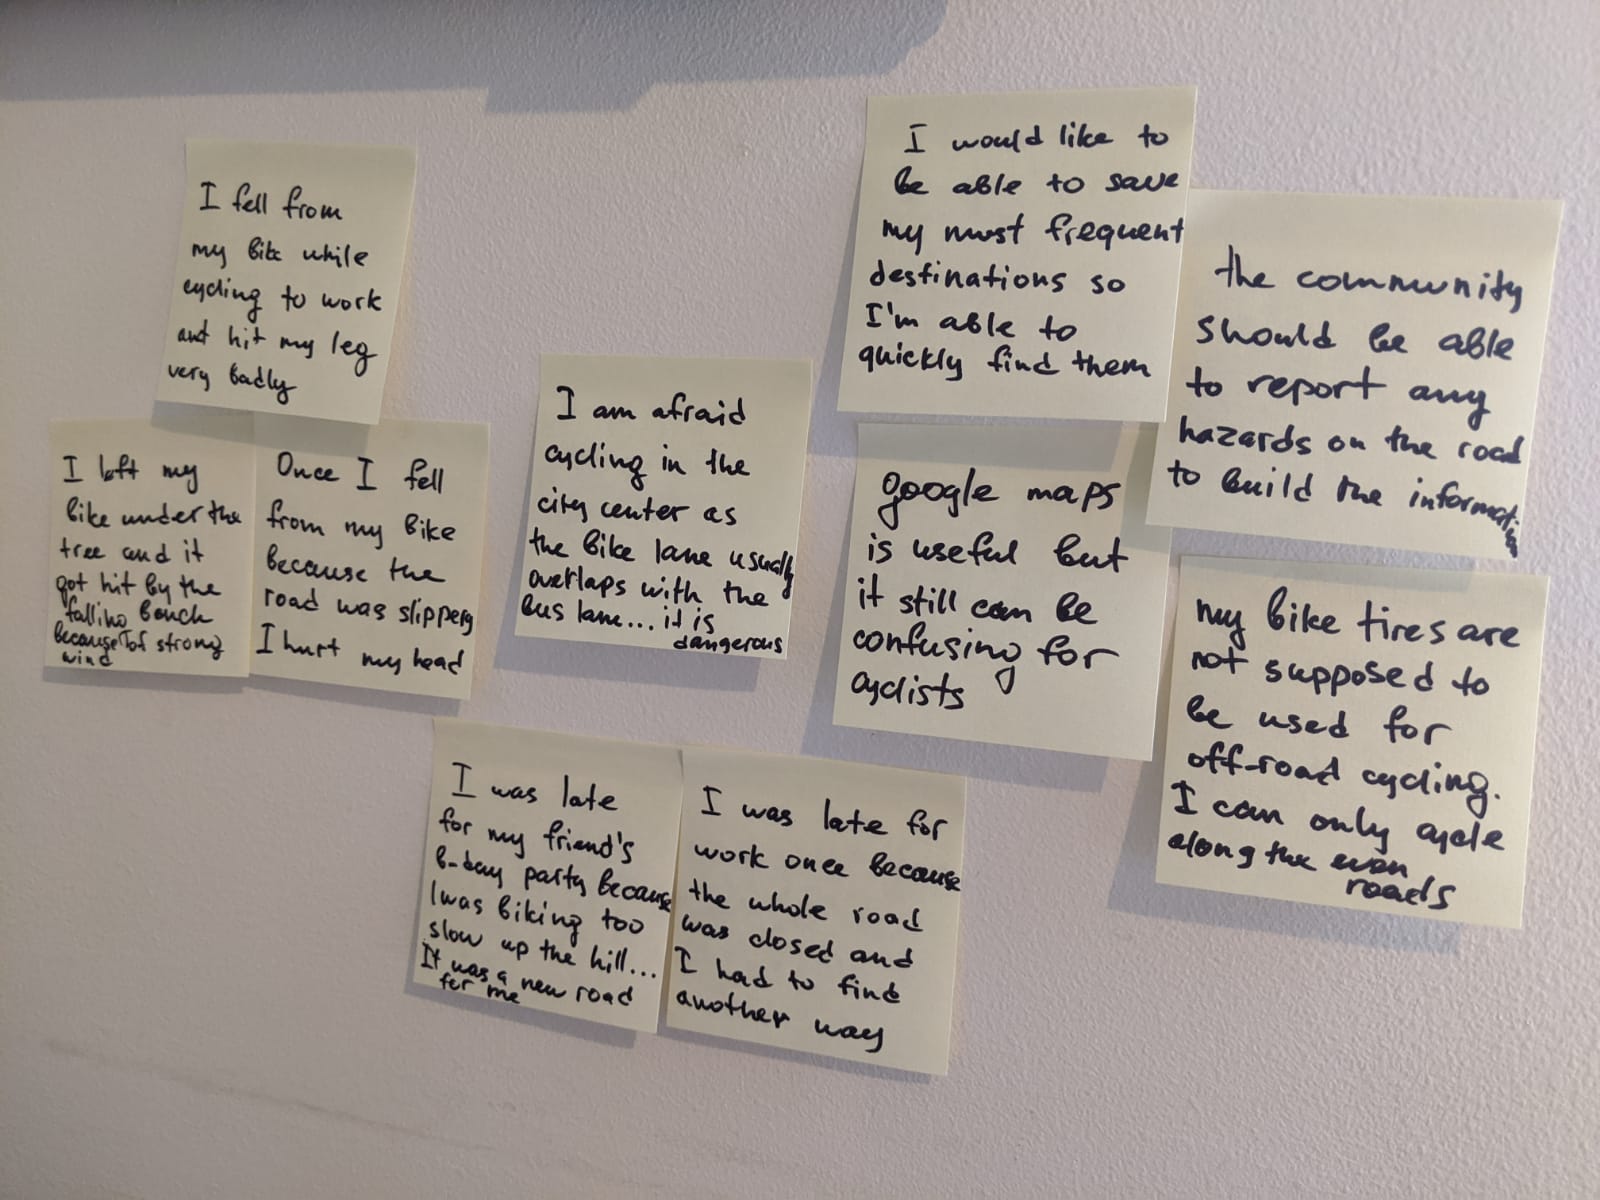 I fell from
my bike while
cycling to work
and hit my leg
very badly
I left my
bike under the
tree and it
got hit by the
falling
because of strong
wind
Once I fell
from my bike
because the
road was slippery
I hurt my head
I am afraid
cycling in the
city center as
the bike lane usually
overlaps with the
bus lane... it is
dangerous
I was late
for my friend's
b-day party because
I was biking too
slow up the hill...
It was a new road
for me
I was late for
work once because
the whole road
was closed and
I had to find
another way
I would like to
be able to save
my most frequent
destinations so
I'm able to
quickly find them
google maps
is useful but
it still can be
confusing for
cyclists
the community
should be able
to report any
hazards on the road
to build the information
my bike tires are
not supposed to
be used for
off-road cycling.
I can only cycle
along the even
roads